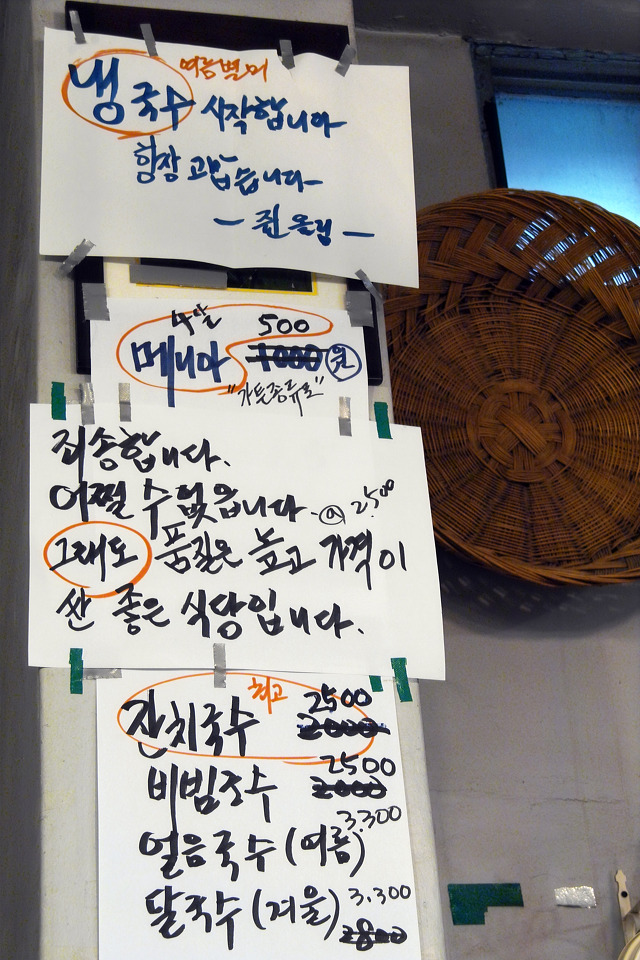 여름별미
냉국수 시작합니다
항상 고맙습니다
- 쥔 올림 -
500
메니아 1000 원
죄송합니다.
어쩔 수 없읍니다. @ 2,500
그래도 품질은 높고 가격이
싼 좋은 식당입니다.
최고
잔치국수 2500 2000
비빔국수 2500 2000
얼음국수 (여름) 3.300
달국수 (겨울) 3.300 2800